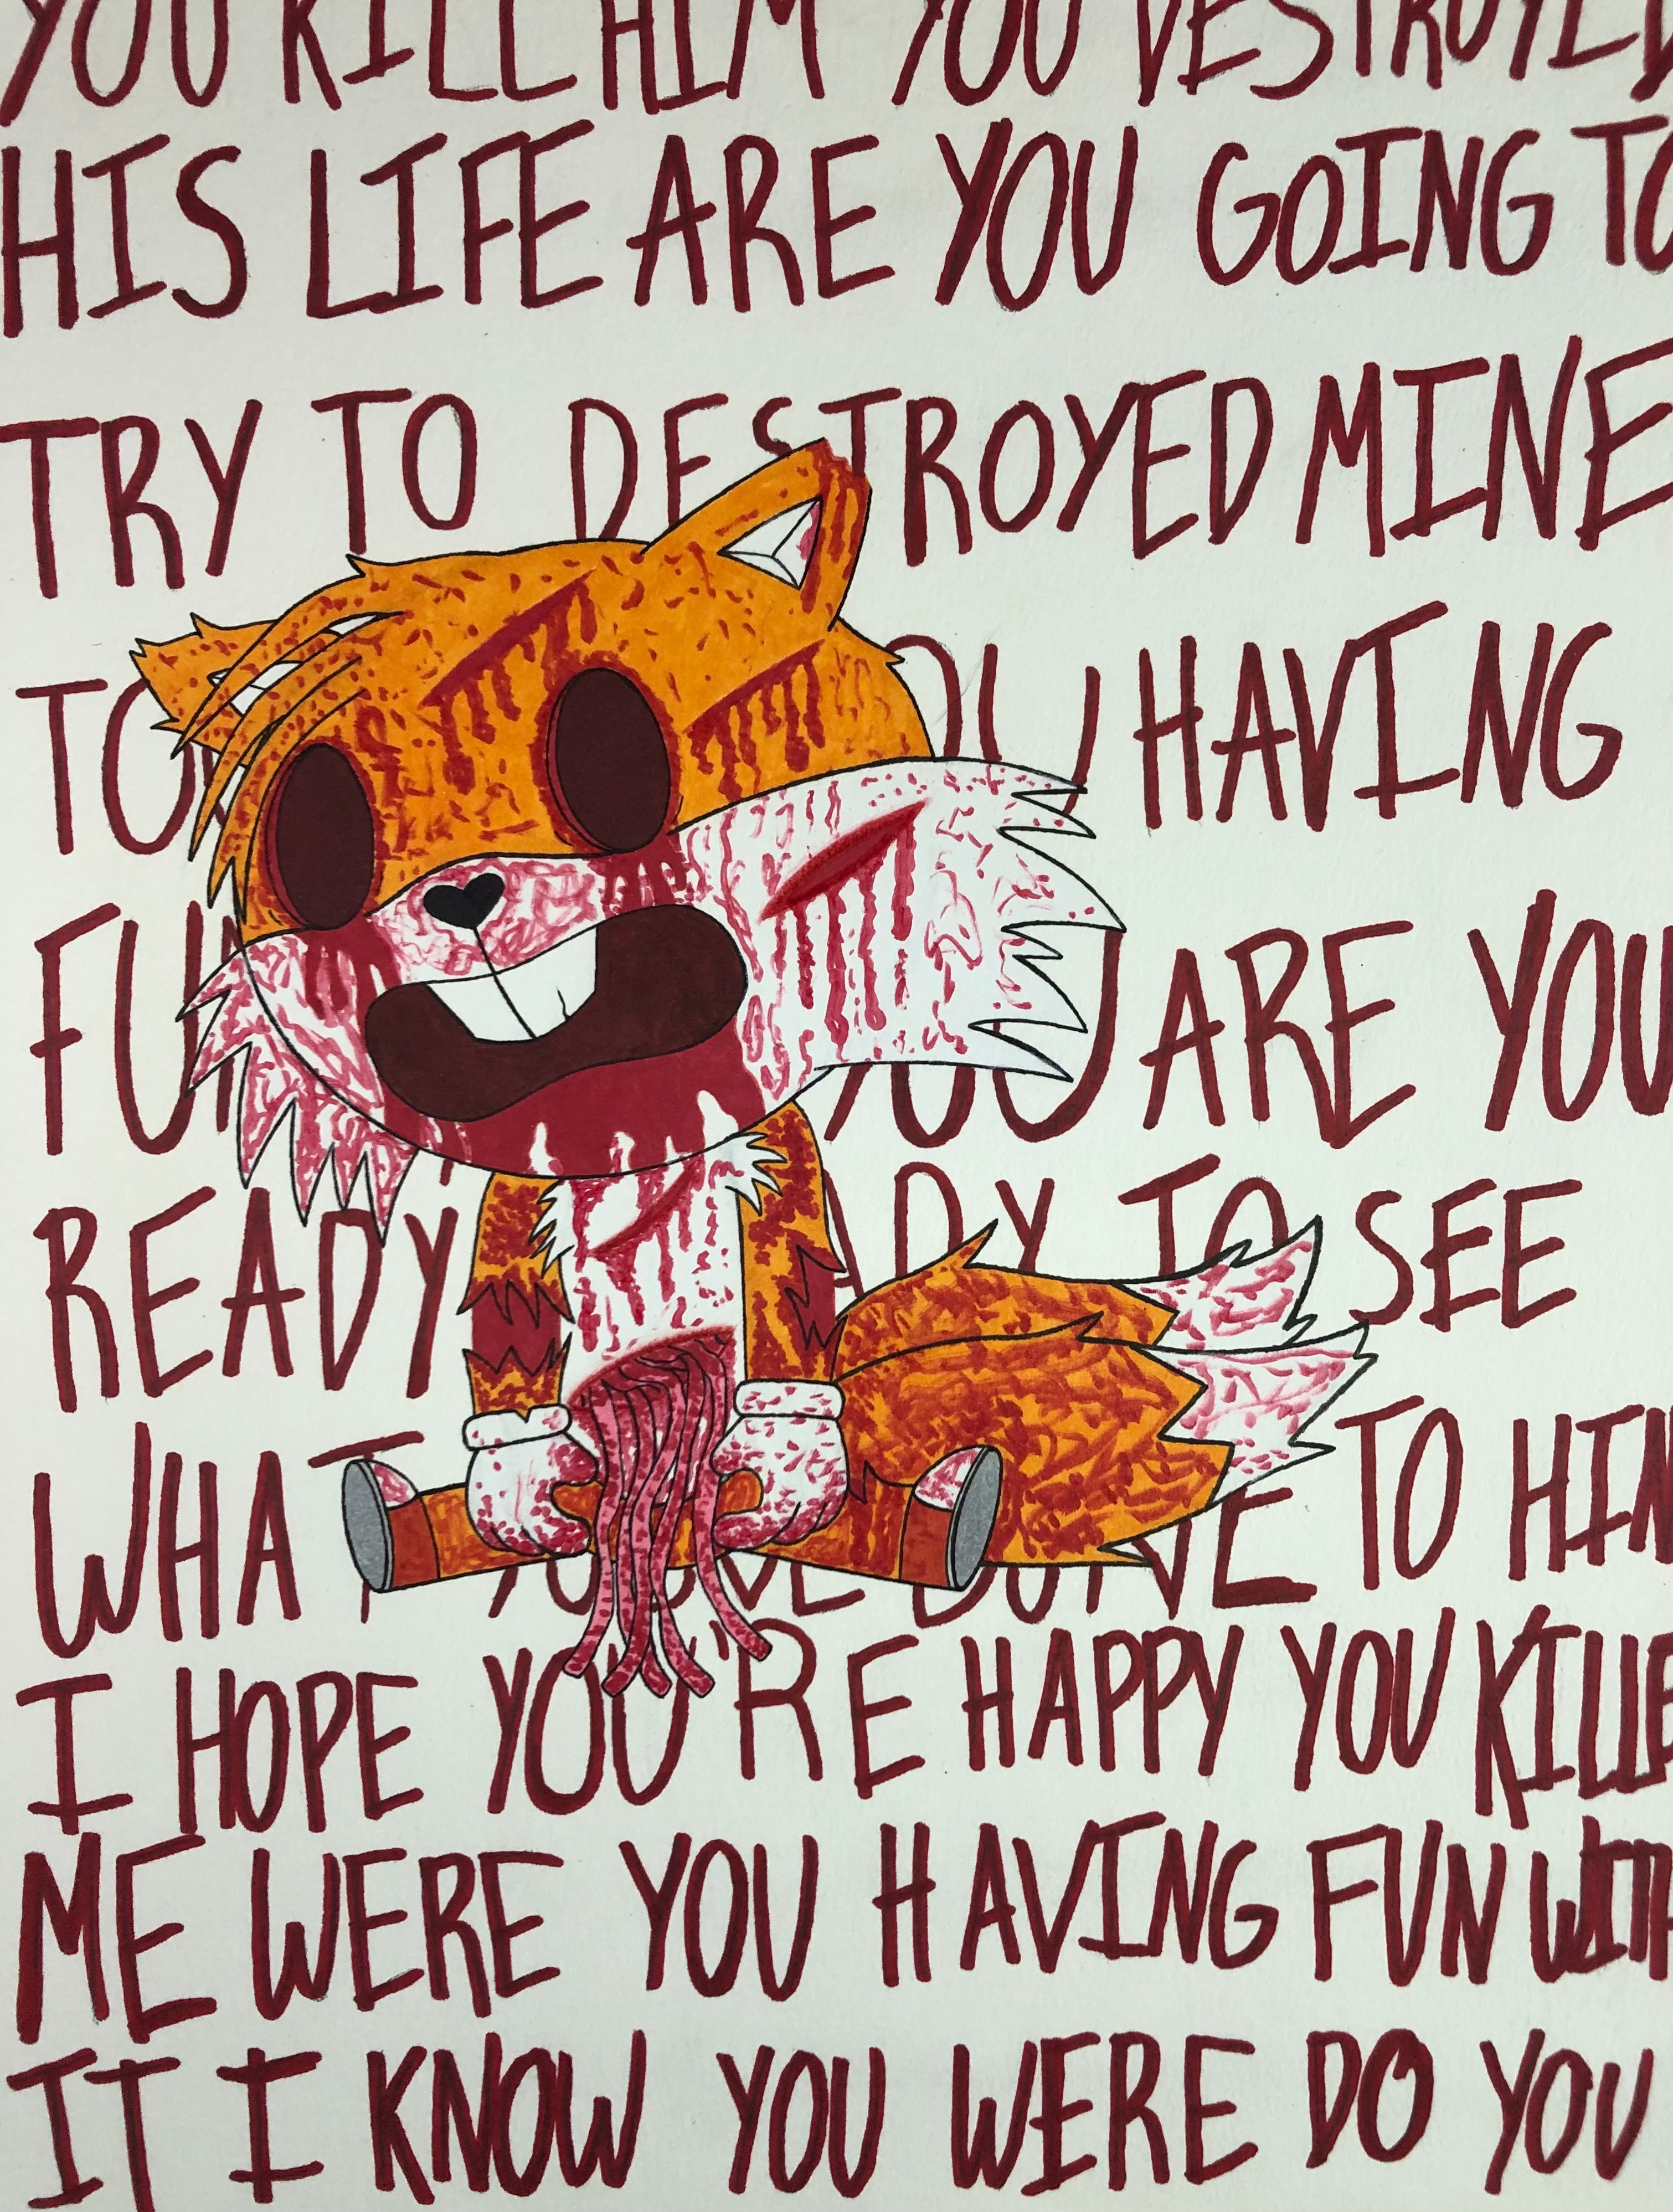 YOU KILL HIM YOU DESTROYED
HIS LIFE ARE YOU GOING TO
TRY TO DESTROYED MINE
HAVING
YOU ARE YOU
READY TO SEE
WHAT YOU'VE DONE TO HIM
I HOPE YOU'RE HAPPY YOU KILLE
ME WERE YOU HAVING FUN WITH
IT I KNOW YOU WERE DO YOU